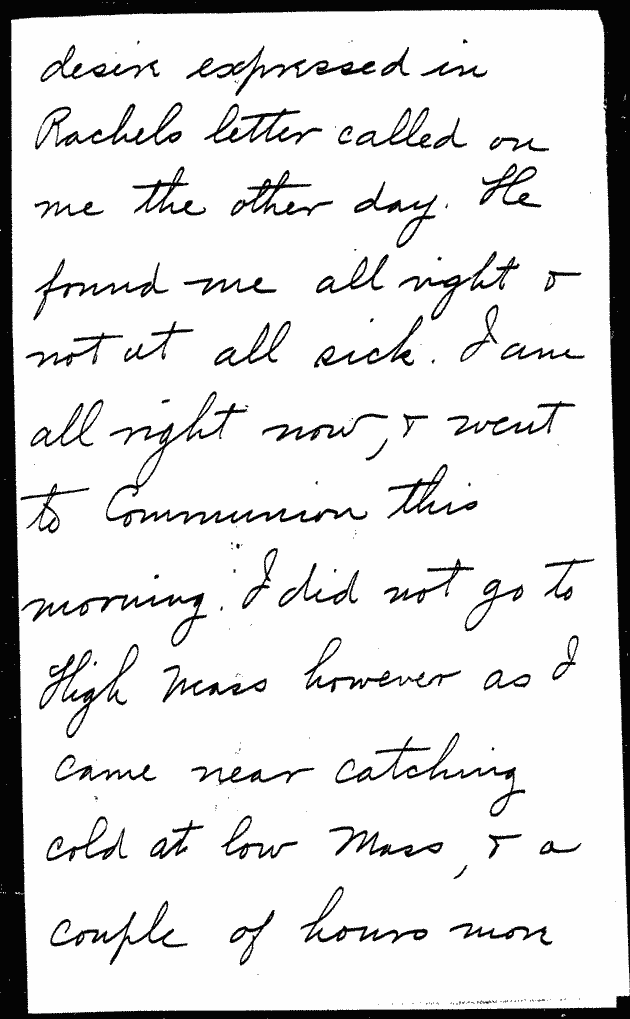 desire expressed in
Rachels letter called on
me the other day. He
found me all right &
not at all sick. I am
all right now, & went
to Communion this
morning. I did not go to
High Mass however as I
came near catching
cold at low Mass, & a
couple of hours more